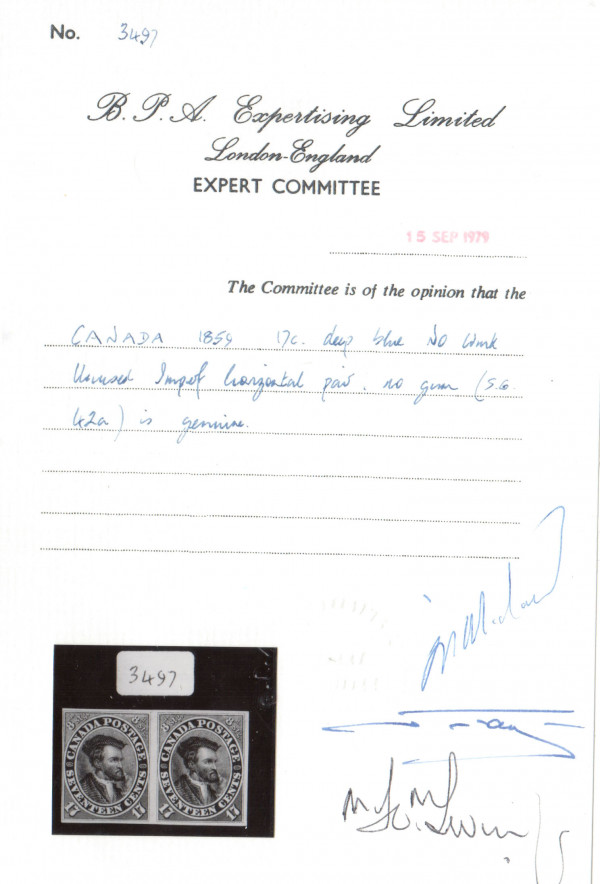 No. 3497
B.P.A. Expertising Limited
London-England
EXPERT COMMITTEE
15 SEP 1979
The Committee is of the opinion that the
CANADA 1859 17c. deep blue No Wmk
Unused Imperf horizontal pair. no gum (S.G.
42a) is genuine.
3497
CANADA POSTAGE CANADA POSTAGE
SEVENTEEN CENTS SEVENTEEN CENTS
17 17 17 17